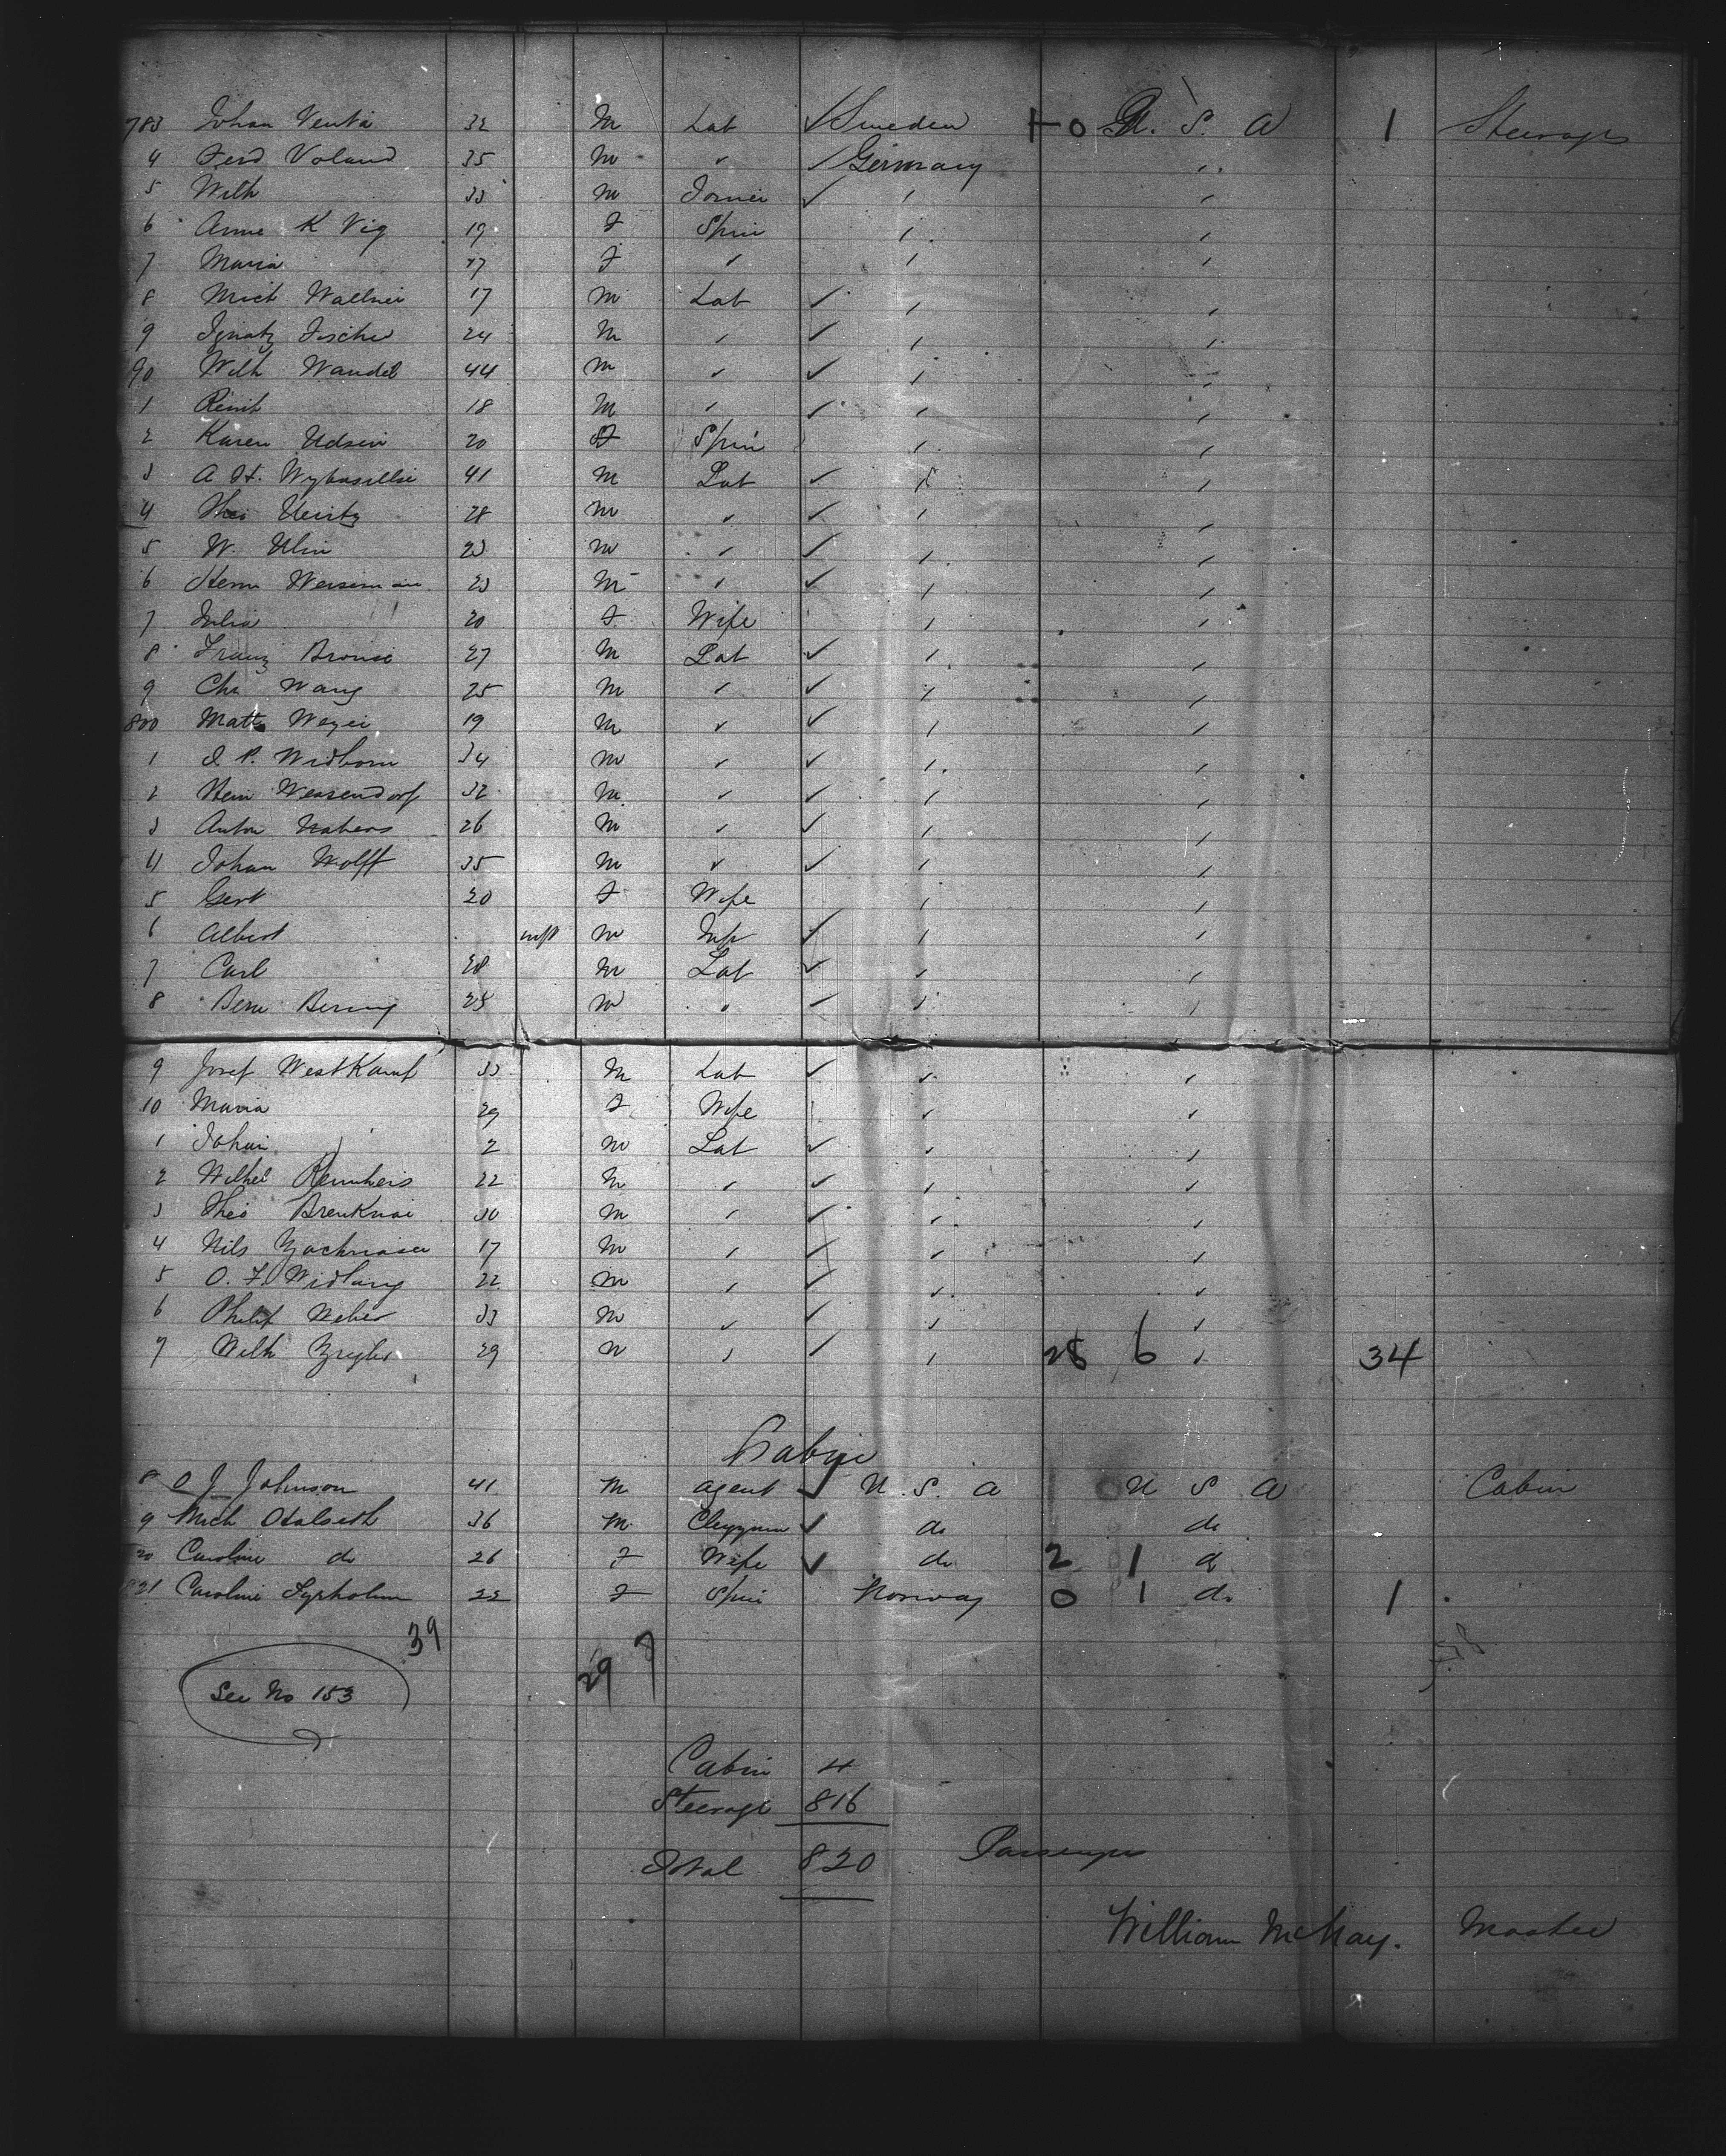 783 Johan Venta 32 M Lab ✓ Sweden 1 0 U. S. A 1 Steerage
4 Ferd Voland 35 M " ✓ Germany "
5 Wilh 33 M Joiner ✓ " "
6 Anne K Vig 19 F Spin " "
7 Maria 27 F " " "
8 Mich Wallner 17 M Lab ✓ " "
9 Ignatz Fischer 24 M " ✓ " "
90 Wilh Wandel 44 M " ✓ " "
1 18 M " ✓ " "
2 Karen Udsen 20 F Spin " "
3 A H. 41 M Lab ✓ " "
4 Theo 28 M " ✓ " "
5 W. Ulin 23 M " ✓ " "
6 Herm Weiseman 23 M " ✓ " "
7 Julia 20 F Wife " "
8 Franz 27 M Lab ✓ " "
9 Chr Wang 25 M " ✓ " "
800 Matts 19 M " ✓ " "
1 J. P. Widborn 34 M " ✓ " "
2 Hein Wessendorf 32 M " ✓ " "
3 Anton 26 M " ✓ " "
4 Johan Wolff 35 M " ✓ " "
5 Gert 20 F Wife " "
6 Albert inft M Inft ✓ " "
7 Carl 28 M Lab ✓ " "
8 Bern Bering 25 M " ✓ " "
9 Josef WestKamp 33 M Lab ✓ " "
10 Maria 29 F Wife " "
1 Johan 2 M Lab ✓ " "
2 Wilhel 22 M " ✓ " "
3 Theo 30 M " ✓ " "
4 Nils Zachriasen 17 M " ✓ " "
5 O. F. Widlung 22 M " ✓ " "
6 Philip Weber 33 M " ✓ " "
7 Wilh Ziegler 29 M " ✓ " 28 6 " 34
Cabin
8 O J Johnson 41 M Agent ✓ U. S. A U S A Cabin
9 Mich Halseth 36 M Clergyman ✓ do do
20 Caroline do 26 F Wife ✓ do 2 1 do
821 Caroline 22 F Spin Norway 0 1 do 1
39
29 7
See No 153
Cabin 4
Steerage 816
Total 820 Passengers
William McKay. Master